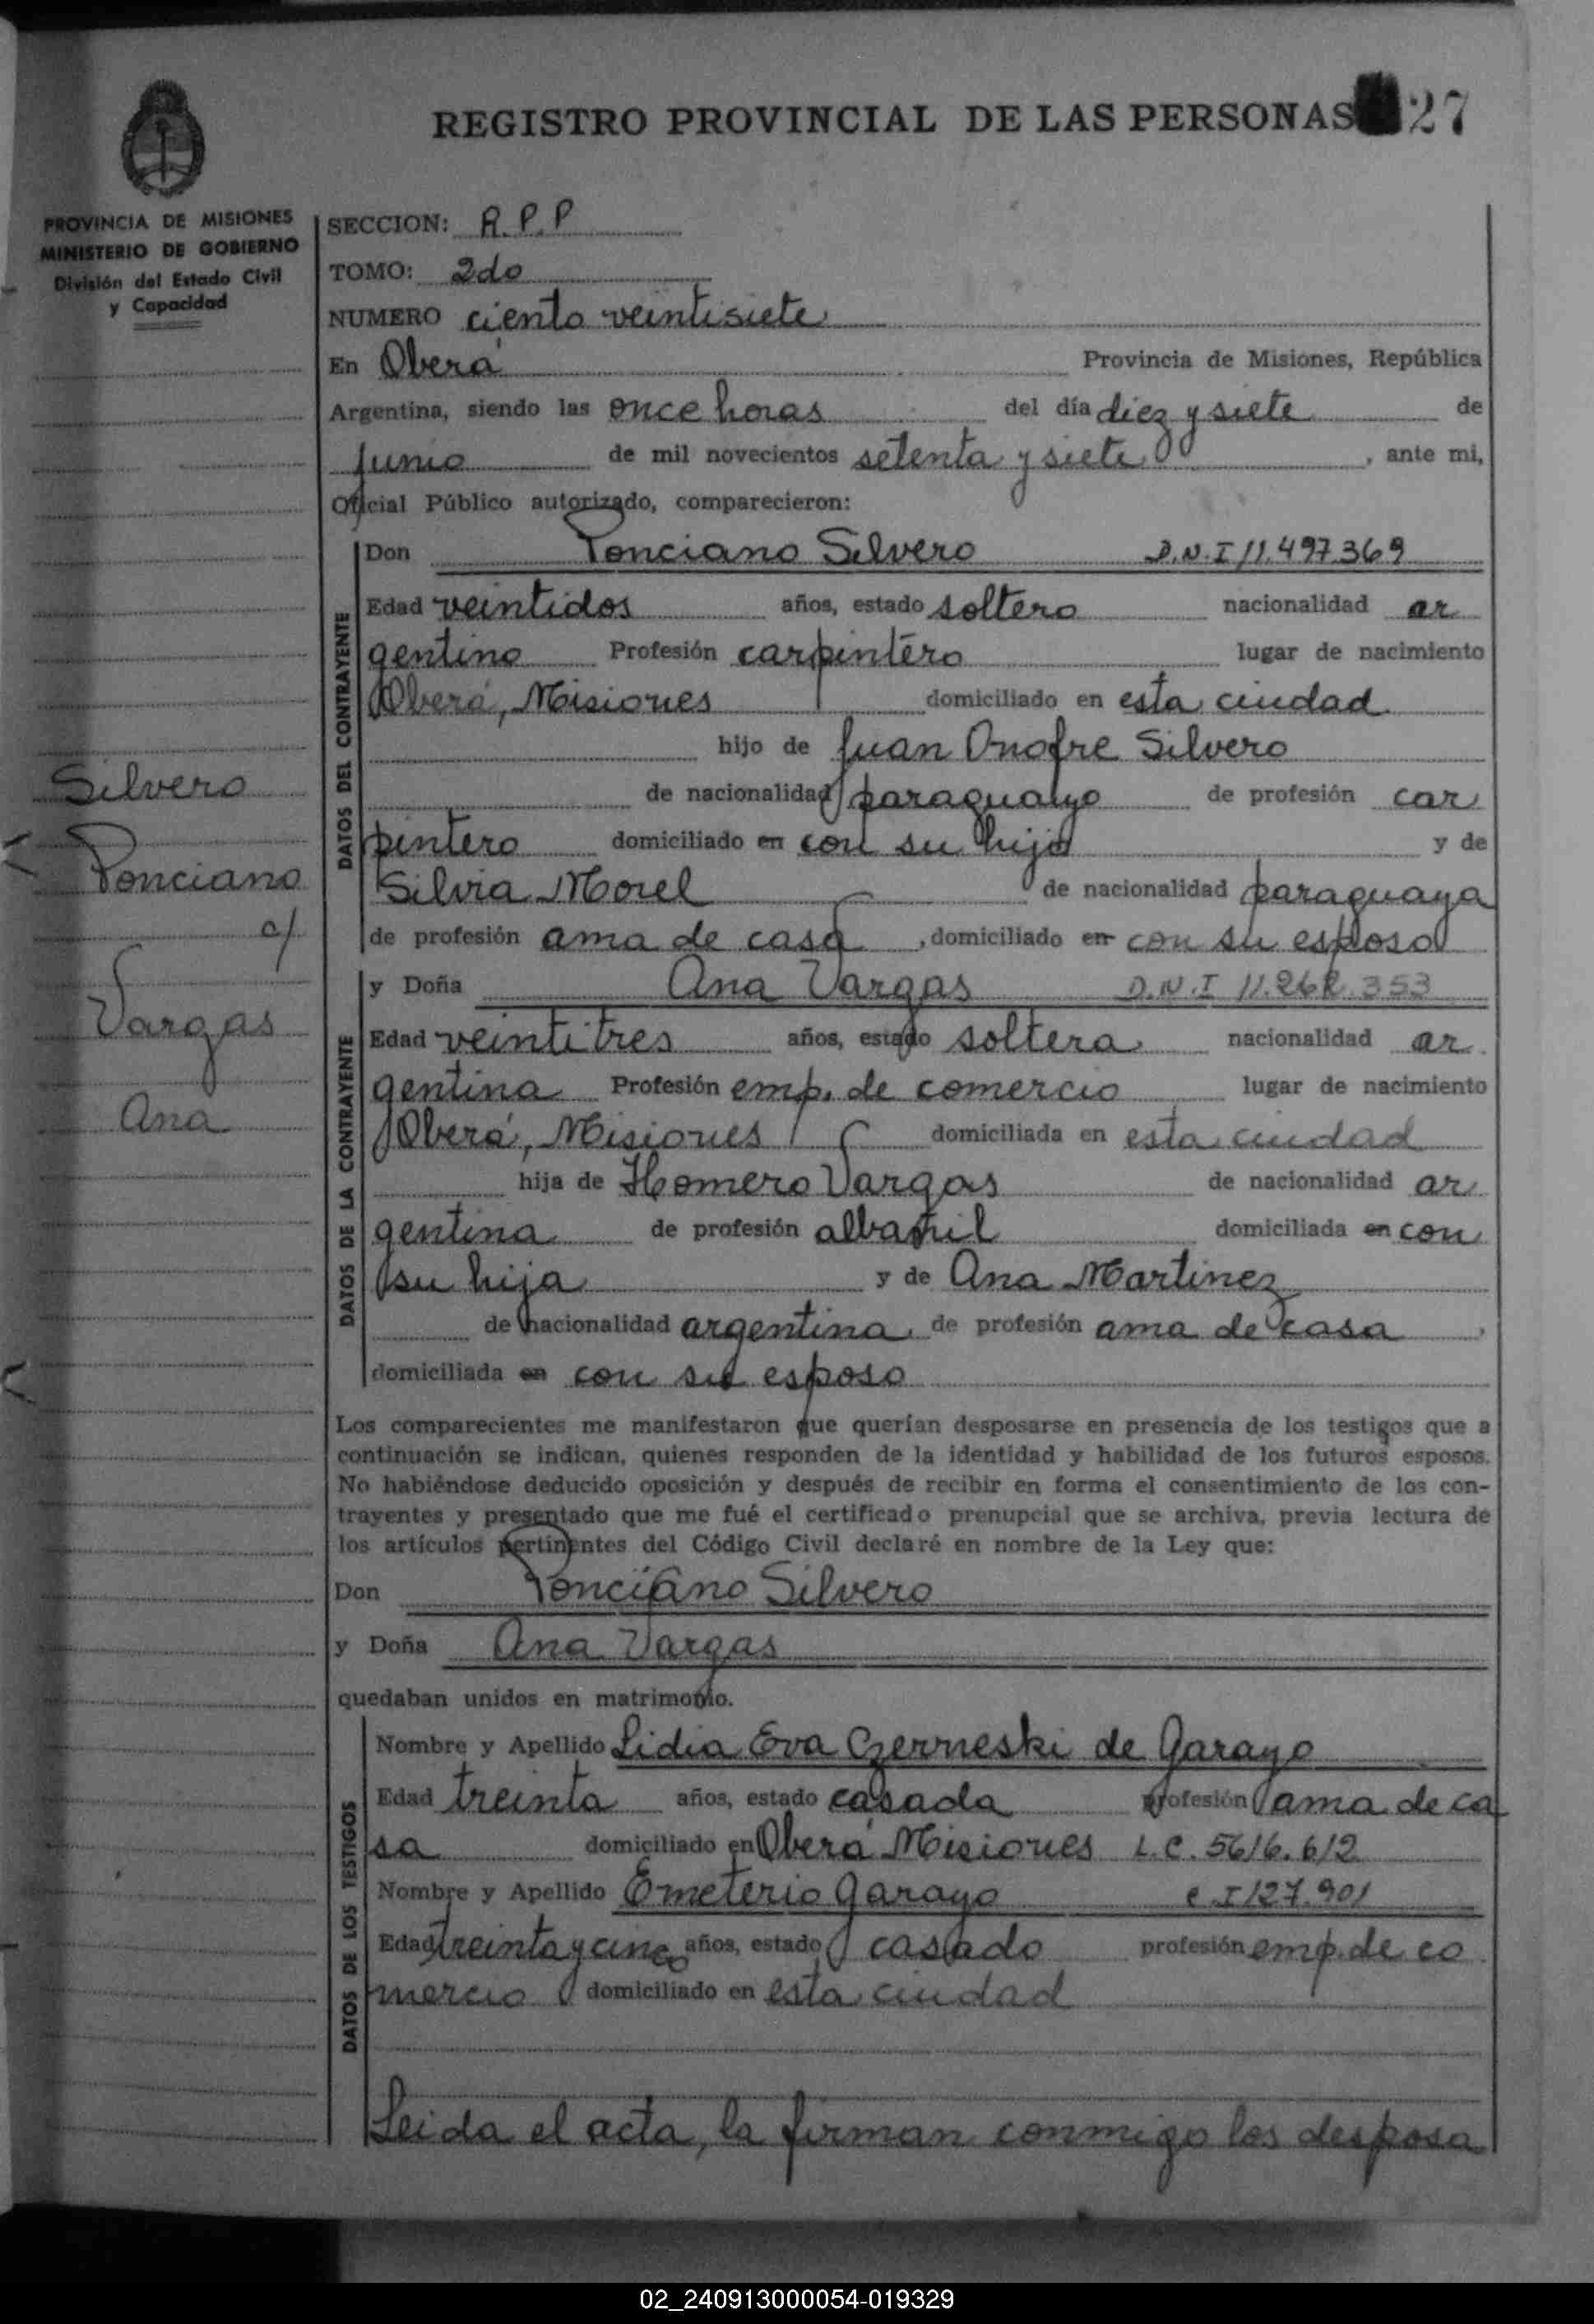 REGISTRO PROVINCIAL DE LAS PERSONAS 27
PROVINCIA DE MISIONES
MINISTERIO DE GOBIERNO
División del Estado Civil
y Capacidad
Silvero
Ponciano
c/
Vargas
Ana
SECCION: R.P.P
TOMO: 2do
NUMERO ciento veintisiete
En Oberá Provincia de Misiones, República
Argentina, siendo las once horas del día diez y siete de
Junio de mil novecientos setenta y siete, ante mi,
Oficial Público autorizado, comparecieron:
DATOS DEL CONTRAYENTE
Don Ponciano Silvero D.N.I 11.497.369
Edad veintidos años, estado soltero nacionalidad ar
gentino Profesión carpintero lugar de nacimiento
Oberá, Misiones domiciliado en esta ciudad
hijo de Juan Onofre Silvero
de nacionalidad paraguayo de profesión car
pintero domiciliado en con su hijo y de
Silvia Morel de nacionalidad paraguaya
de profesión ama de casa, domiciliado en con su esposo
DATOS DE LA CONTRAYENTE
y Doña Ana Vargas D.N.I 11.262.353
Edad veintitres años, estado soltera nacionalidad ar
gentina Profesión emp. de comercio lugar de nacimiento
Oberá, Misiones domiciliada en esta ciudad
hija de Homero Vargas de nacionalidad ar
gentina de profesión albañil domiciliada en con
su hija y de Ana Martinez
de nacionalidad argentina, de profesión ama de casa,
domiciliada en con su esposo
Los comparecientes me manifestaron que querían desposarse en presencia de los testigos que a
continuación se indican, quienes responden de la identidad y habilidad de los futuros esposos.
No habiéndose deducido oposición y después de recibir en forma el consentimiento de los con-
trayentes y presentado que me fué el certificado prenupcial que se archiva, previa lectura de
los artículos pertinentes del Código Civil declaré en nombre de la Ley que:
Don Ponciano Silvero
y Doña Ana Vargas
quedaban unidos en matrimonio.
DATOS DE LOS TESTIGOS
Nombre y Apellido Lidia Eva Czerneski de Garayo
Edad treinta años, estado casada profesión ama de ca
sa domiciliado en Oberá Misiones L.C. 5616.612
Nombre y Apellido Emeterio Garayo C I 127.901
Edad treinta y cinco años, estado casado profesión emp. de co
mercio domiciliado en esta ciudad
Leida el acta, la firman conmigo los desposa
02_240913000054-019329